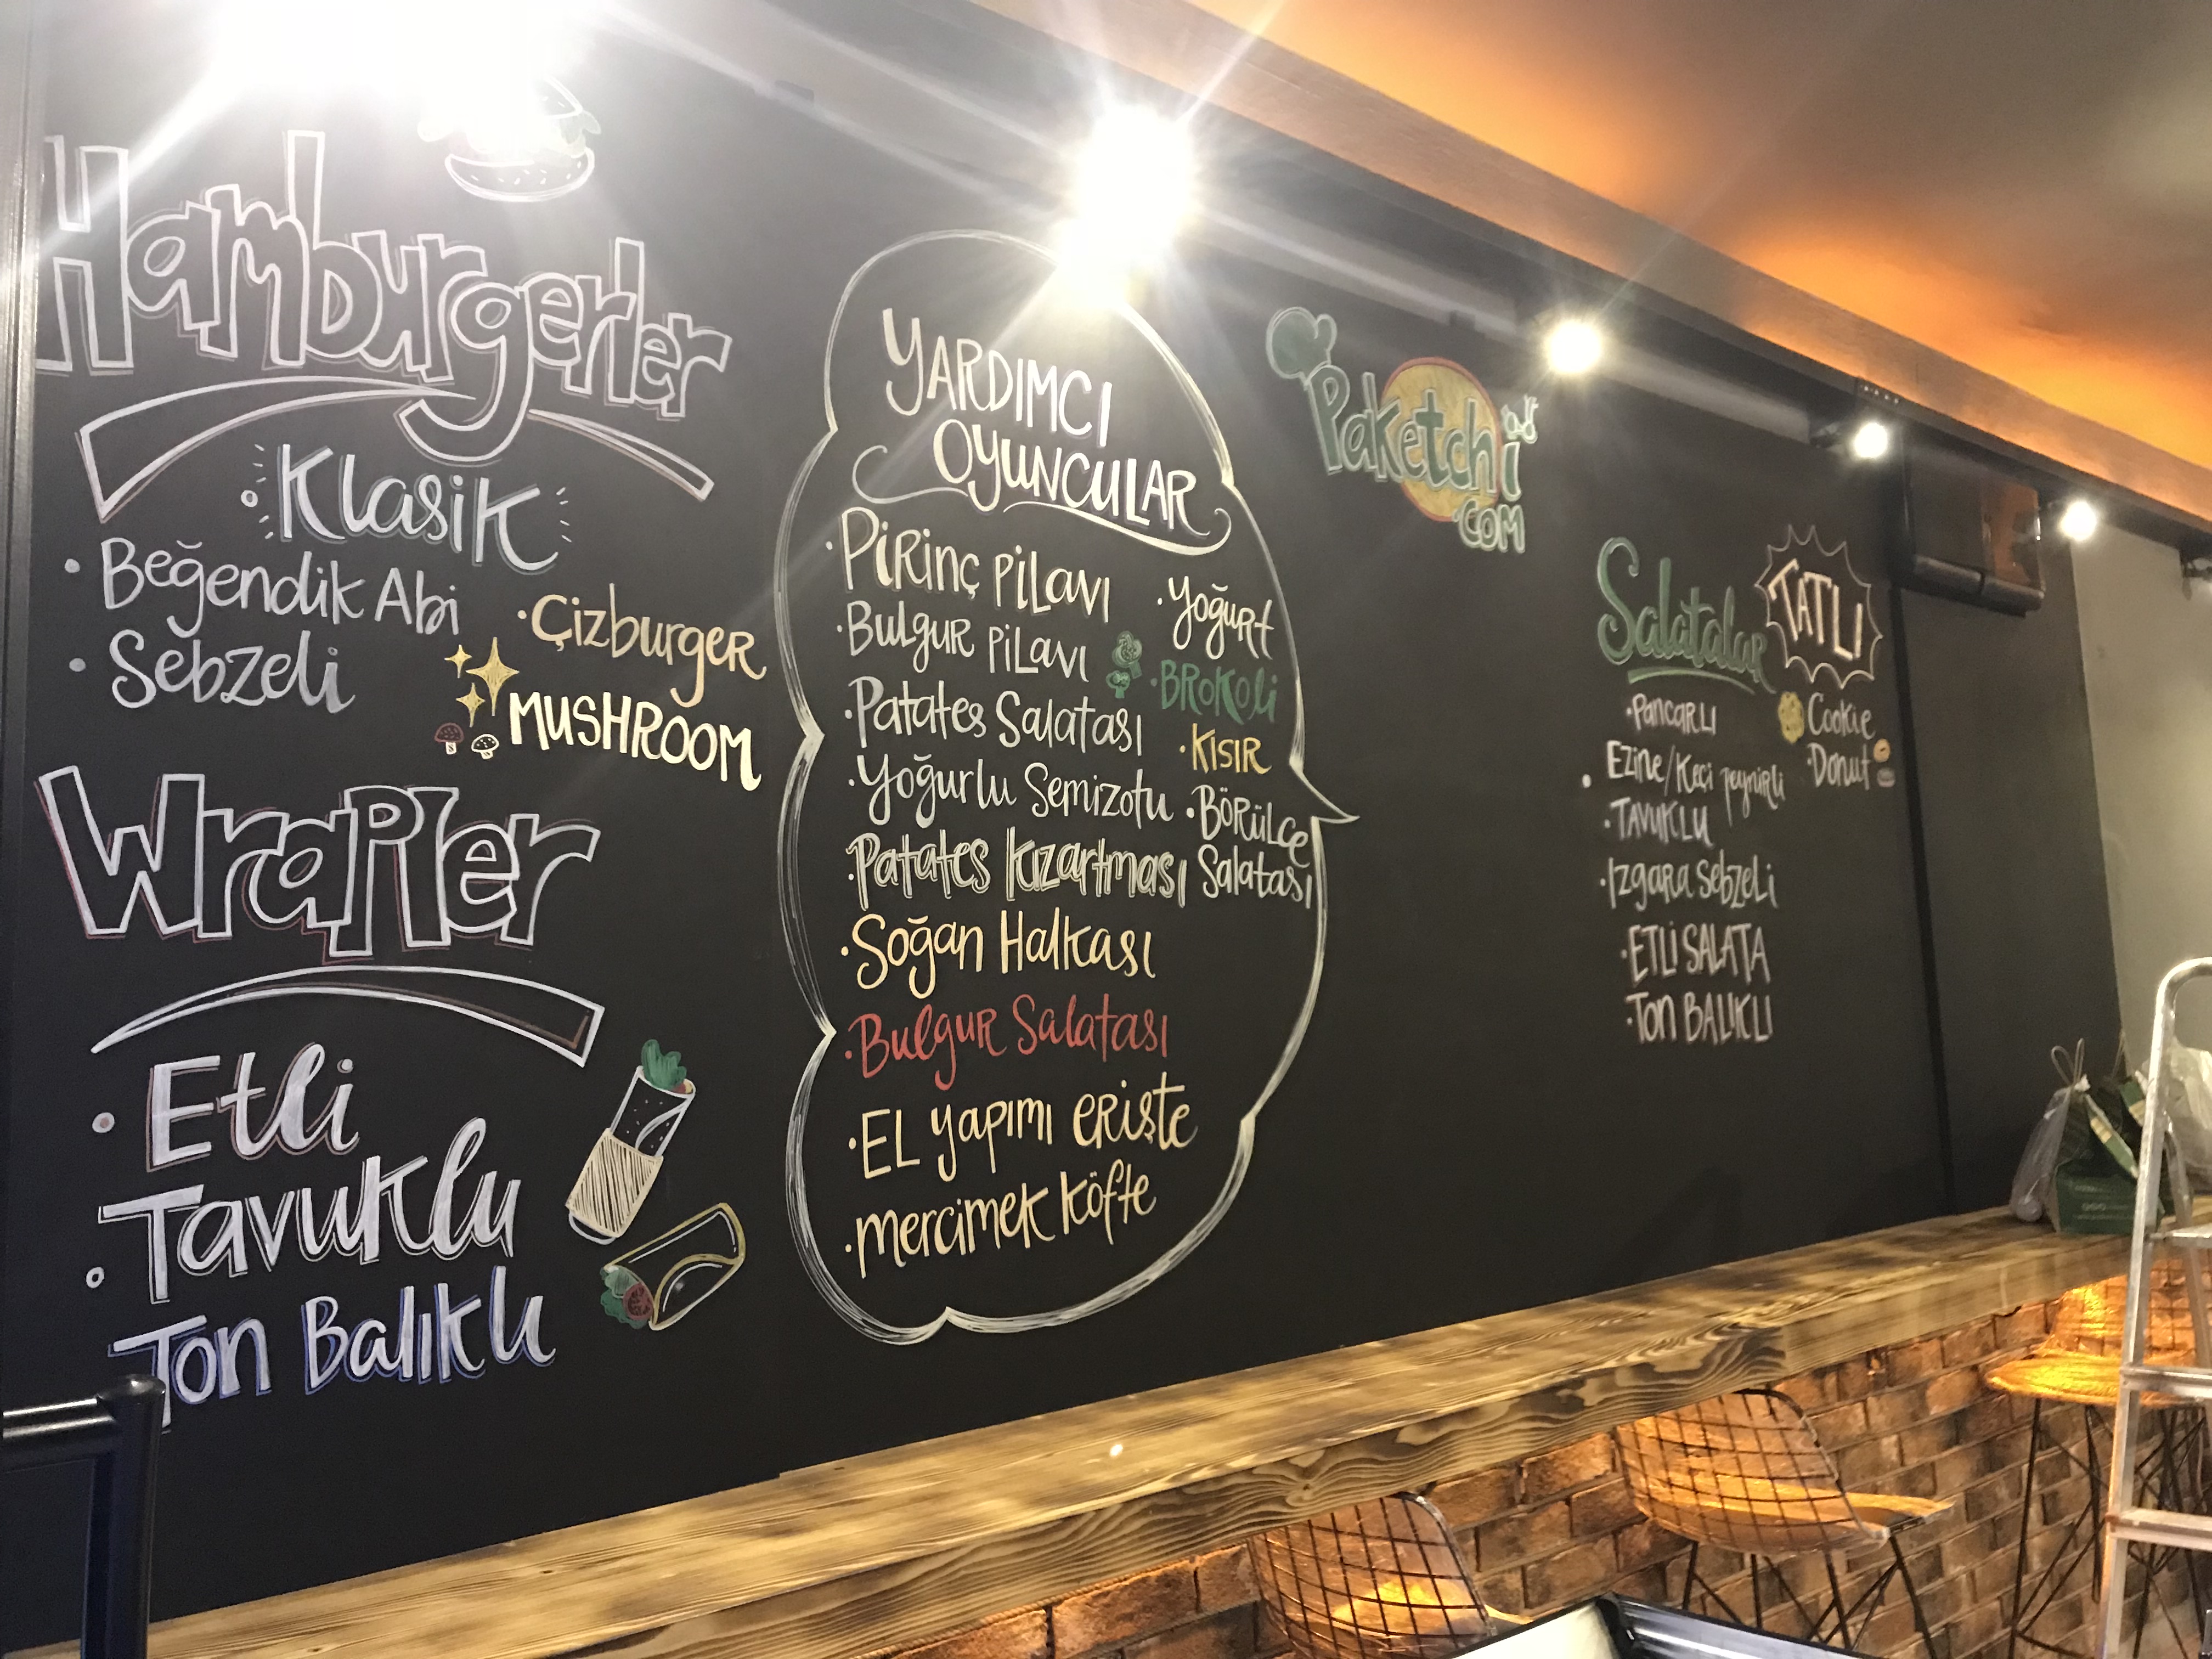 Hamburgerler
• Klasik
• Beğendik Abi
• Sebzeli
• Çizburger
MUSHROOM
Wrapler
• Etli
• Tavuklu
Ton Balıklı
YARDIMCI
OYUNCULAR
• Pirinç Pilavı
• Bulgur Pilavı
• Patates Salatası
• Yoğurlu Semizotu
• Patates Kızartması
• Soğan Halkası
• Bulgur Salatası
• El yapımı erişte
• mercimek köfte
• Yoğurt
• BROKOli
• KISIR
• BÖRÜLCE
Salatası
Paketchi
.COM
Salatalar
• Pancarlı
• Ezine/Keçi peynirli
• TAVUKLU
• Izgara Sebzeli
• ETLİ SALATA
• Ton BALIKLI
TATLI
Cookie
• Donut